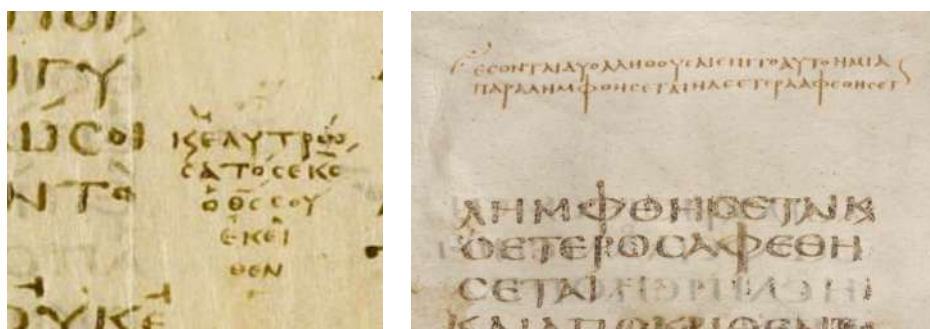 ΓΥ
ΩϹΟΙ
ΝΤΟ
ΟΥΚΕ
ΚΕΛΥΤΡΩ
ϹΑΤΟϹΕΚϹ̅
ΟΘ̅Ϲ̅ϹΟΥ
ΕΚΕΙ
ΘΕΝ
ΕϹΟΝΤΑΙΔΥΟΑΛΗΘΟΥϹΑΙΕΠΙΤΟΑΥΤΟΗΜΙΑ
ΠΑΡΑΛΗΜΦΘΗϹΕΤΑΙΗΔΕΕΤΕΡΑΑΦΕΘΗϹΕΤ
ΛΗΜΦΘΗϹΕΤΑΙΚ
ΟΕΤΕΡΟϹΑΦΕΘΗ
ϹΕΤΑΙ
ΚΑΙΑΠΟΚΡΙΘΕΝΤ